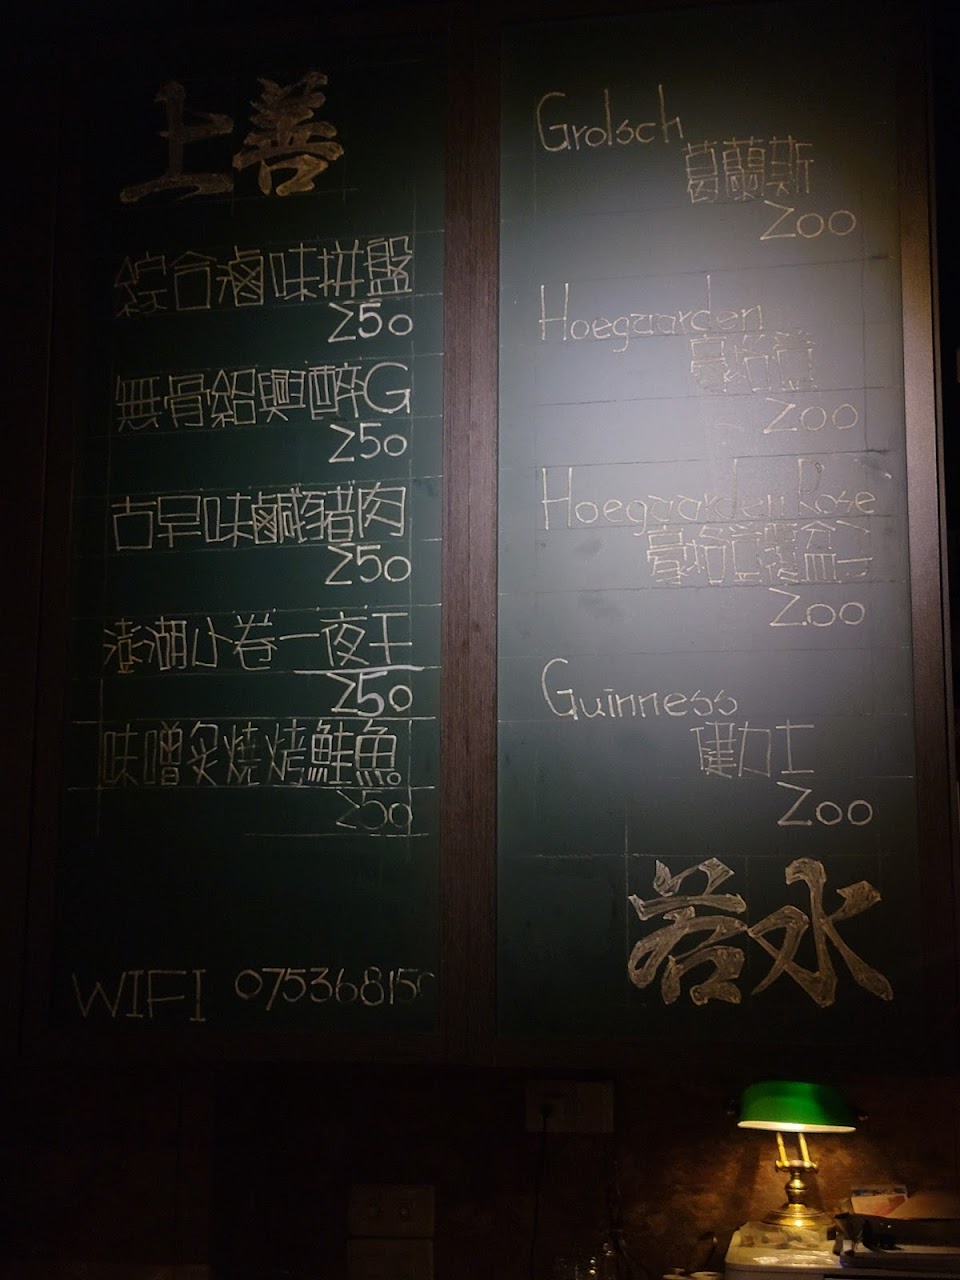 上善
綜合滷味拼盤
250
無骨紹興醉G
250
古早味鹹豬肉
250
澎湖小卷一夜干
250
味噌炙燒烤鮭魚
250
WIFI 075368150
Grolsch
葛蘭斯
200
Hoegaarden
豪格登
200
Hoegaarden Rose
豪格登覆盆子
200
Guinness
健力士
200
若水